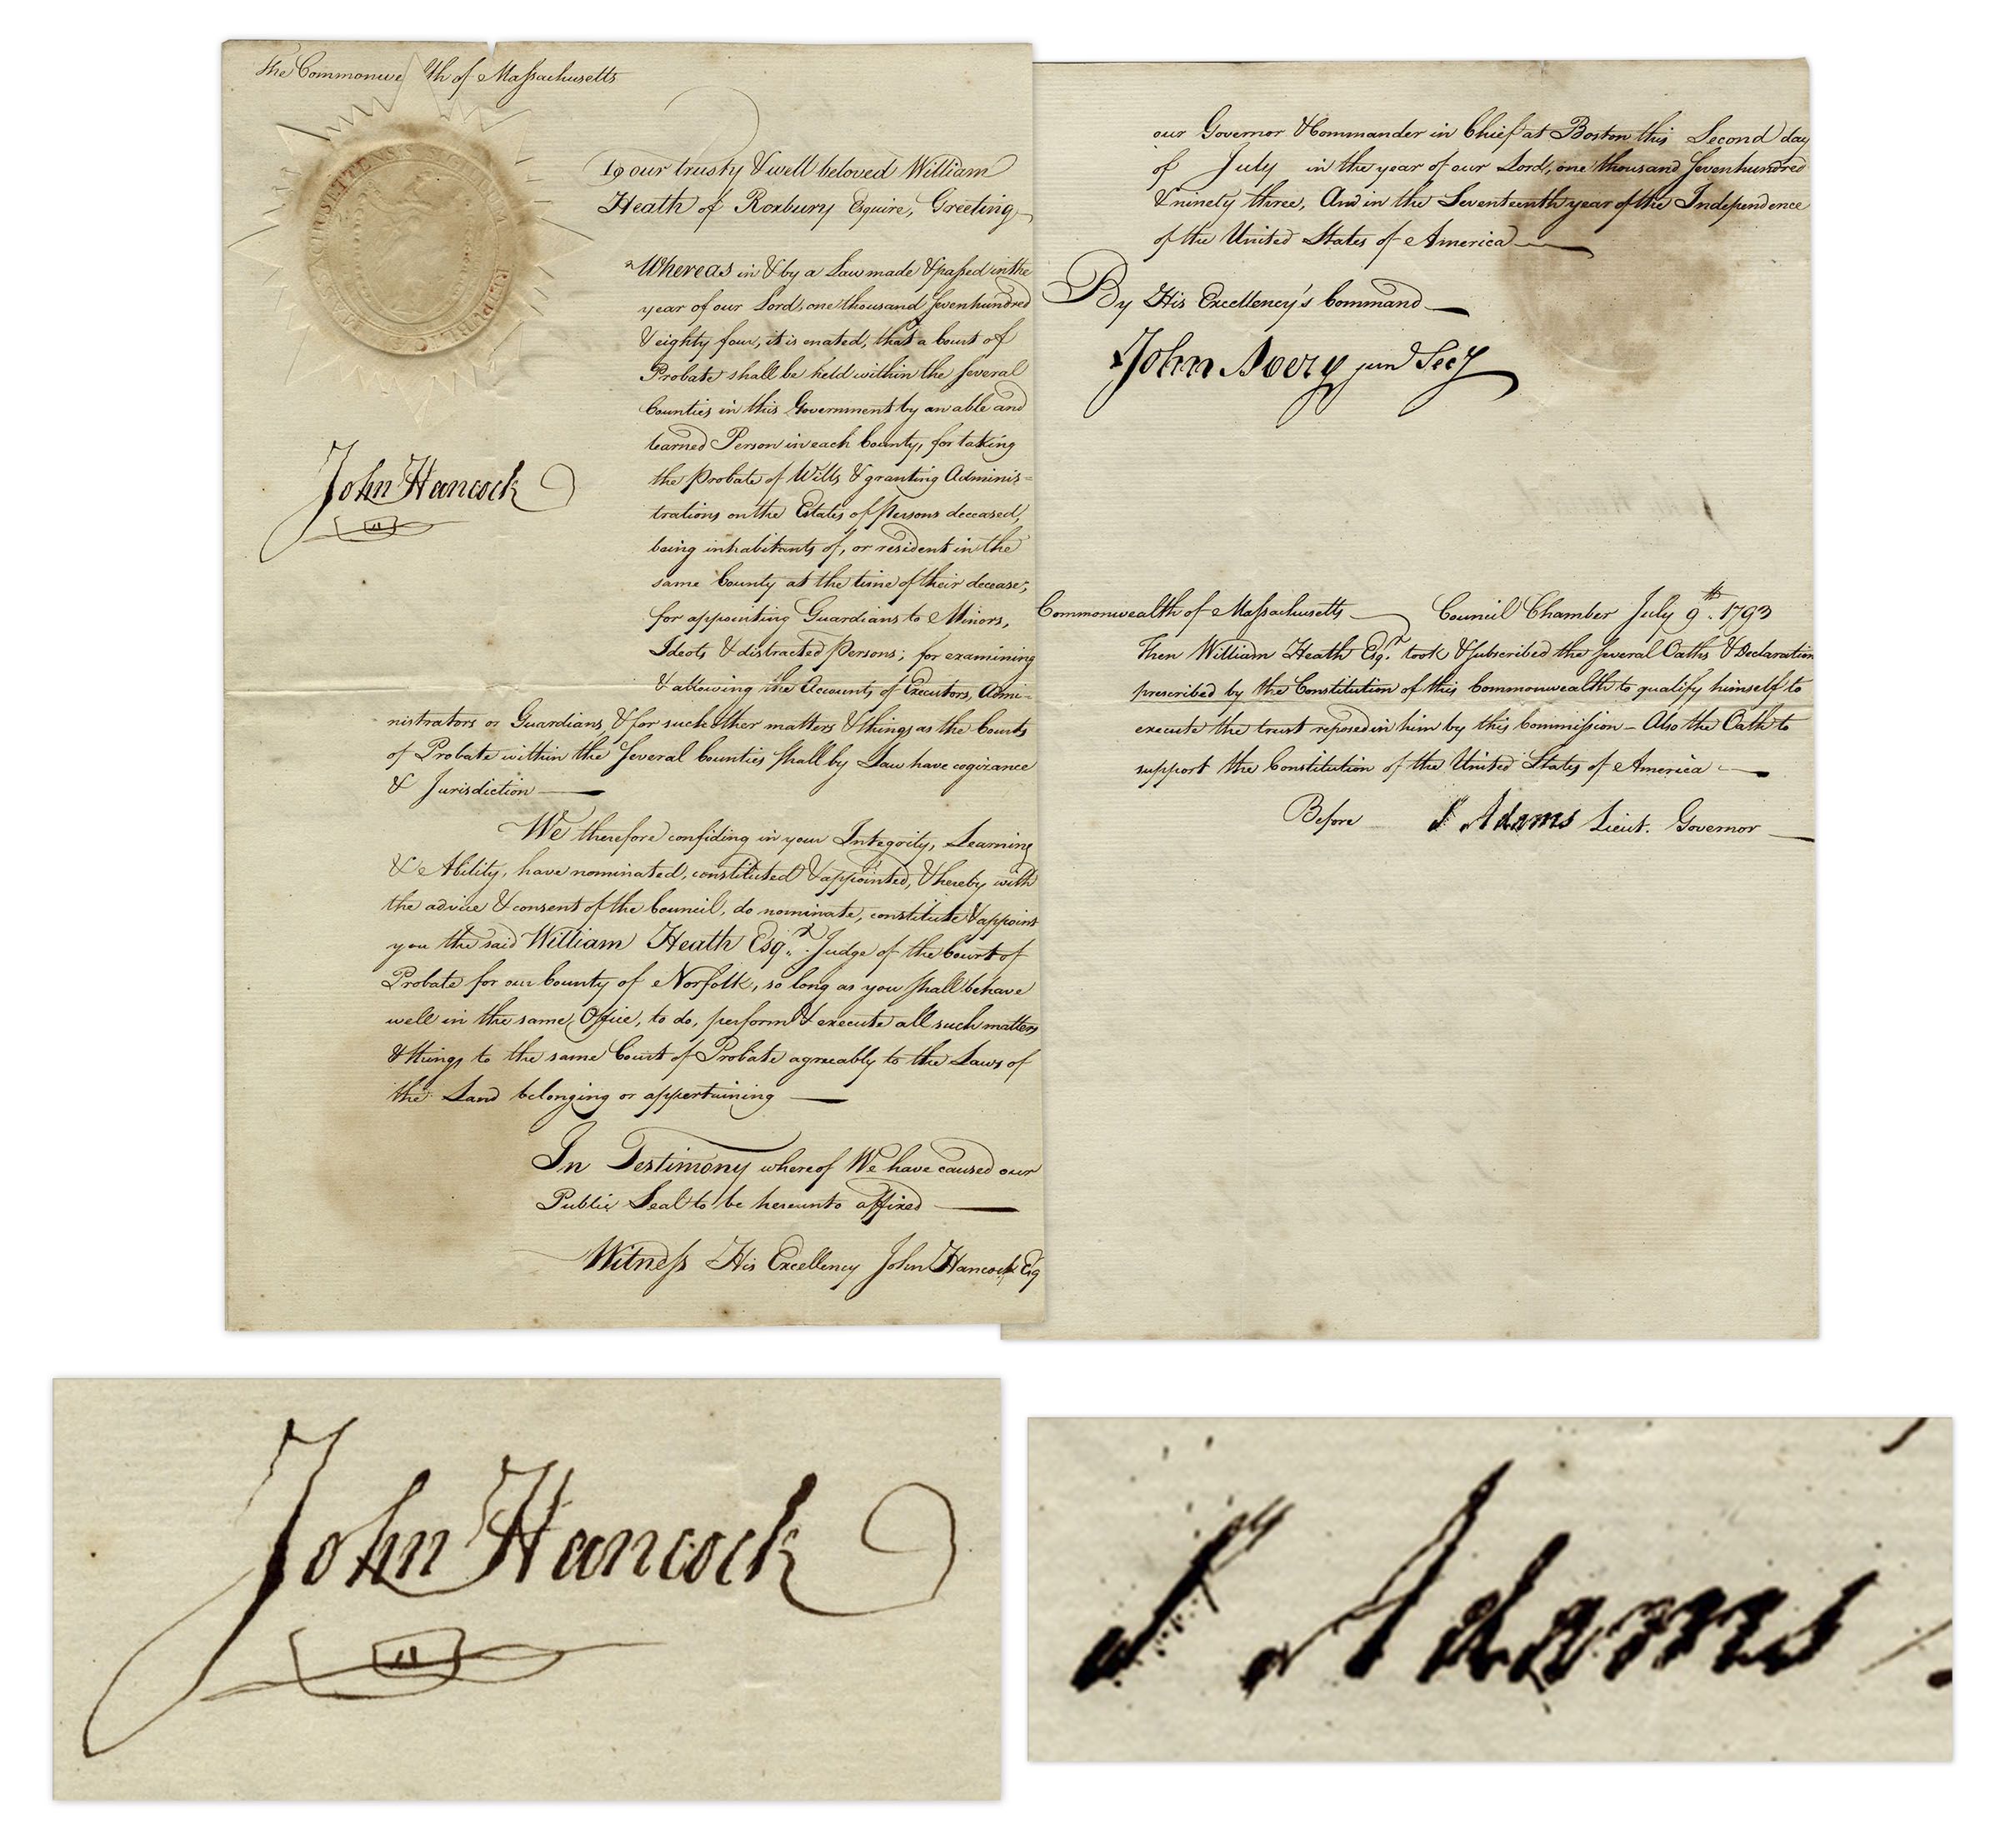 The Commonwe lth of Massachusetts
MASSACHUSETTENSIS REIPUBLICÆ
To our trusty & well beloved William
Heath of Roxbury Esquire, Greeting,
Whereas in & by a Law made & passed in the
year of our Lord, one thousand seven hundred
& eighty four, it is enated, that a Court of
Probate shall be held within the several
Counties in this Government by an able and
learned Person in each County, for taking
the Probate of Wills & granting Adminis=
trations on the Estates of Persons deceased,
being inhabitants of, or resident in the
same County at the time of their decease;
for appointing Guardians to Minors,
Ideots & distracted Persons; for examining
& allowing the Accounts of Executors, Admi=
nistrators or Guardians, & for such other matters & things as the Courts
of Probate within the several Counties shall by Law have cognizance
& Jurisdiction —
John Hancock
We therefore confiding in your Integrity, Learning
& Ability, have nominated, constituted & appointed, & hereby with
the advice & consent of the Council, do nominate, constitute & appoint
you the said William Heath Esqr. Judge of the Court of
Probate for our County of Norfolk, so long as you shall behave
well in the same Office, to do, perform & execute all such matters
& things to the same Court of Probate agreeably to the Laws of
the Land belonging or appertaining —
In Testimony whereof We have caused our
Public Seal to be hereunto affixed —
Witness His Excellency John Hancock Esq
our Governor & Commander in Chief at Boston this Second day
of July in the year of our Lord, one thousand seven hundred
& ninety three, And in the Seventeenth year of the Independence
of the United States of America —
By His Excellency's Command —
John Avery junr Secy
Commonwealth of Massachusetts — Council Chamber July 9th. 1793
Then William Heath Esqr. took & subscribed the several Oaths & Declaration
prescribed by the Constitution of this Commonwealth to qualify himself to
execute the trust reposed in him by this Commission — Also the Oath to
support the Constitution of the United States of America —
Before S Adams Lieut. Governor —
John Hancock
S Adams